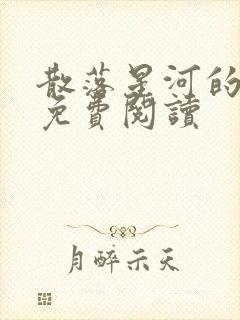 散落星河的
免費閱讀
月醉示天